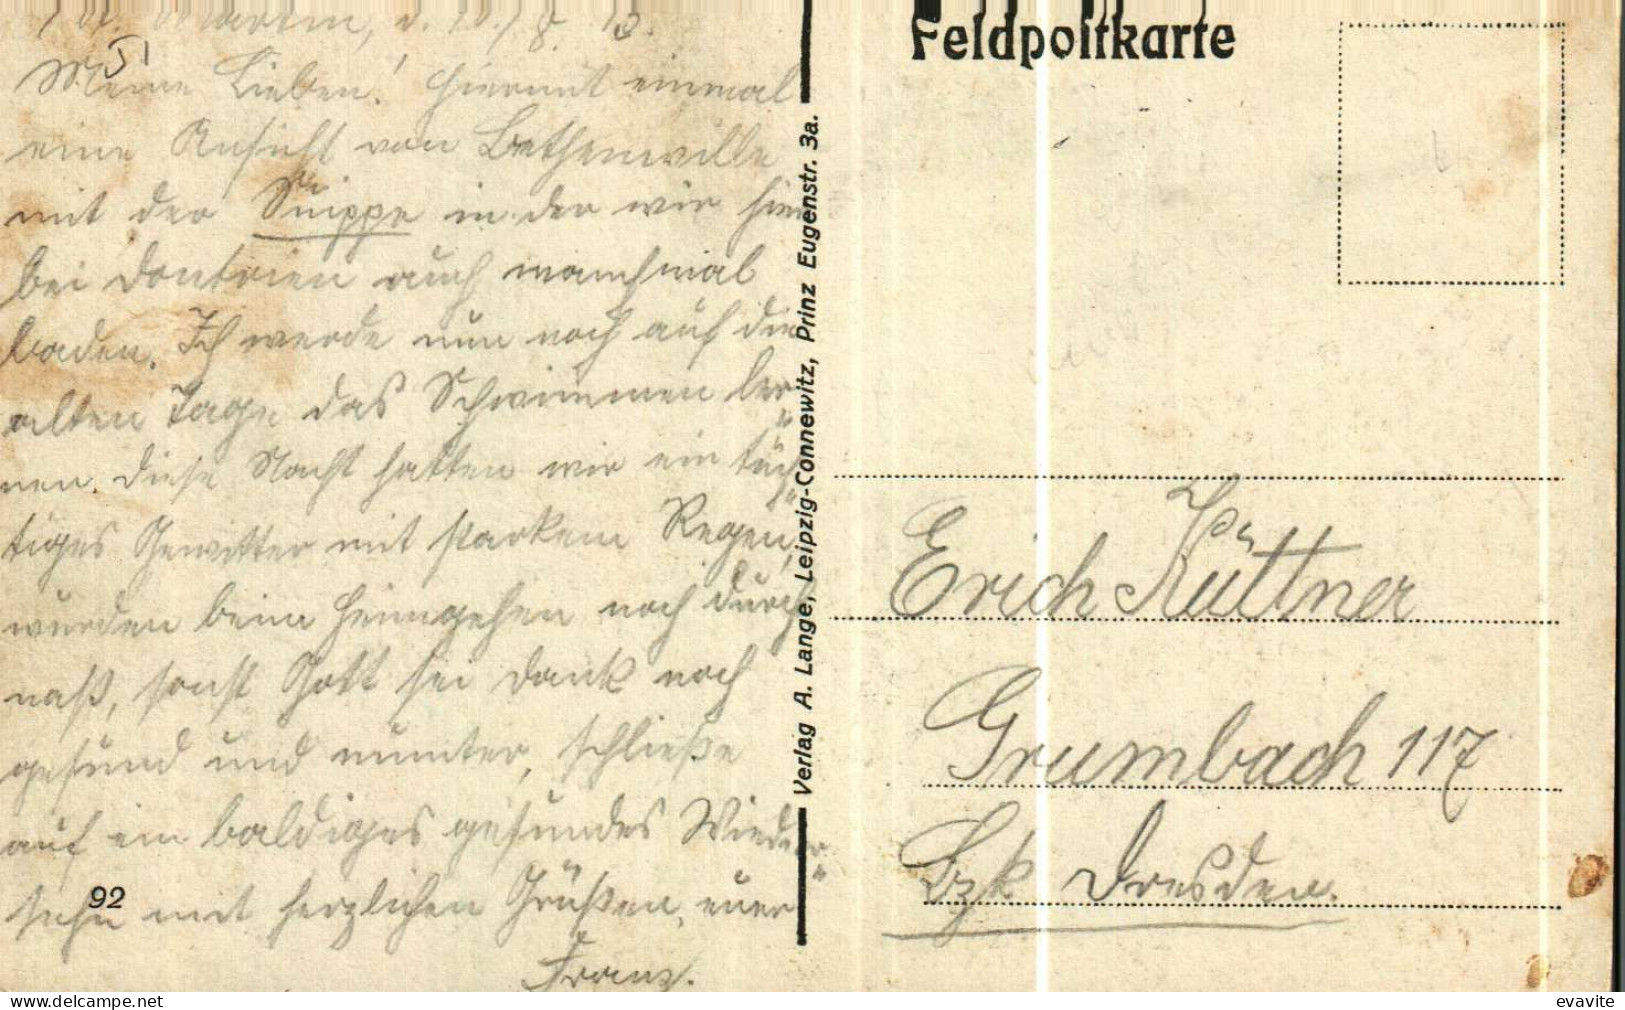 St. Martin, d. 10./8. 15.
Meine Lieben! Hiermit einmal
eine Ansicht von Betheniville
mit der Suippe in der wir hier
bei Dontrien auch manchmal
baden. Ich werde nun noch auf die
alten Tage das Schwimmen ler„
nen. Diese Nacht hatten wir ein tüch„
tiges Gewitter mit starkem Regen,
wurden beim Heimgehen noch durch
naß, sonst Gott sei Dank noch
gesund und munter, schließe
auf ein baldiges gesundes Wieder„
sehn mit herzlichen Grüßen, euer
Franz.
92
Verlag A. Lange, Leipzig-Connewitz, Prinz Eugenstr. 3a.
Feldpostkarte
Erich Küttner
Grumbach 117
Bzk. Dresden.
evavite